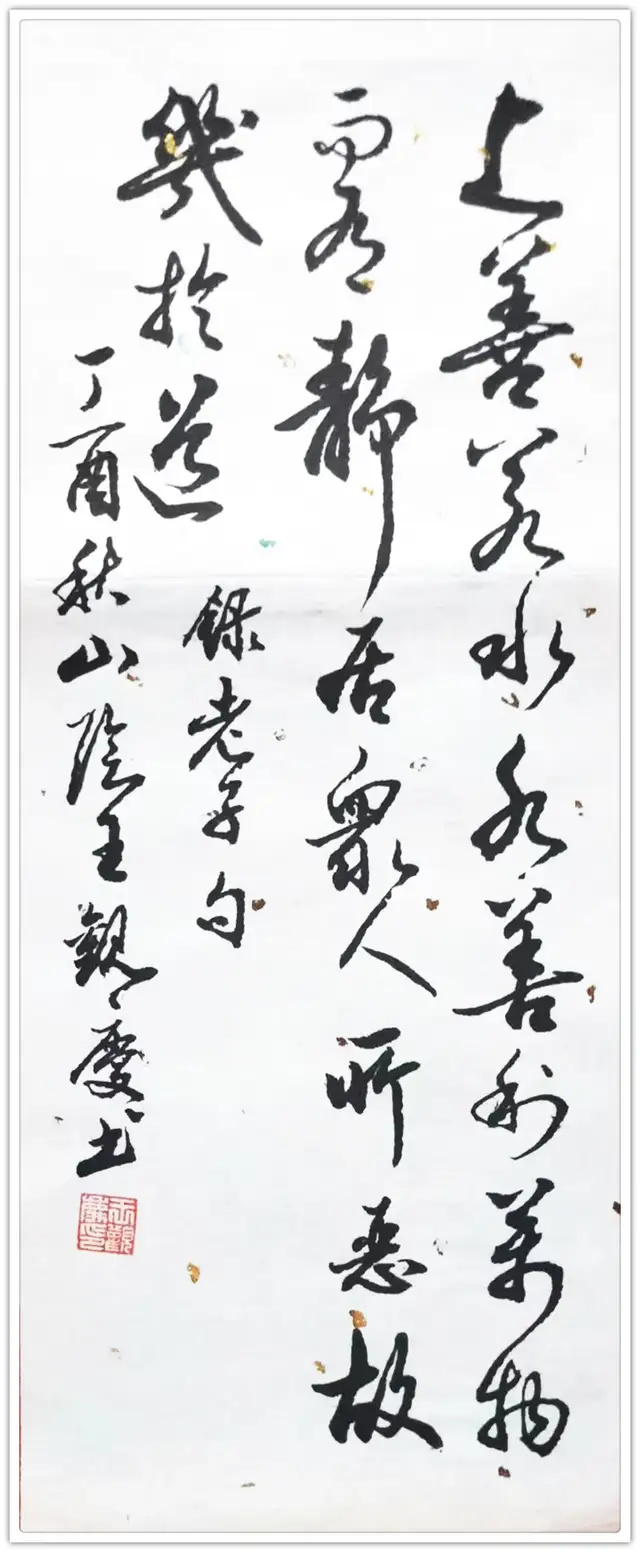 上善若水水善利萬物
而有靜居眾人所惡故
幾於道
錄老子句
丁酉秋山陰王觀慶书
王觀慶印